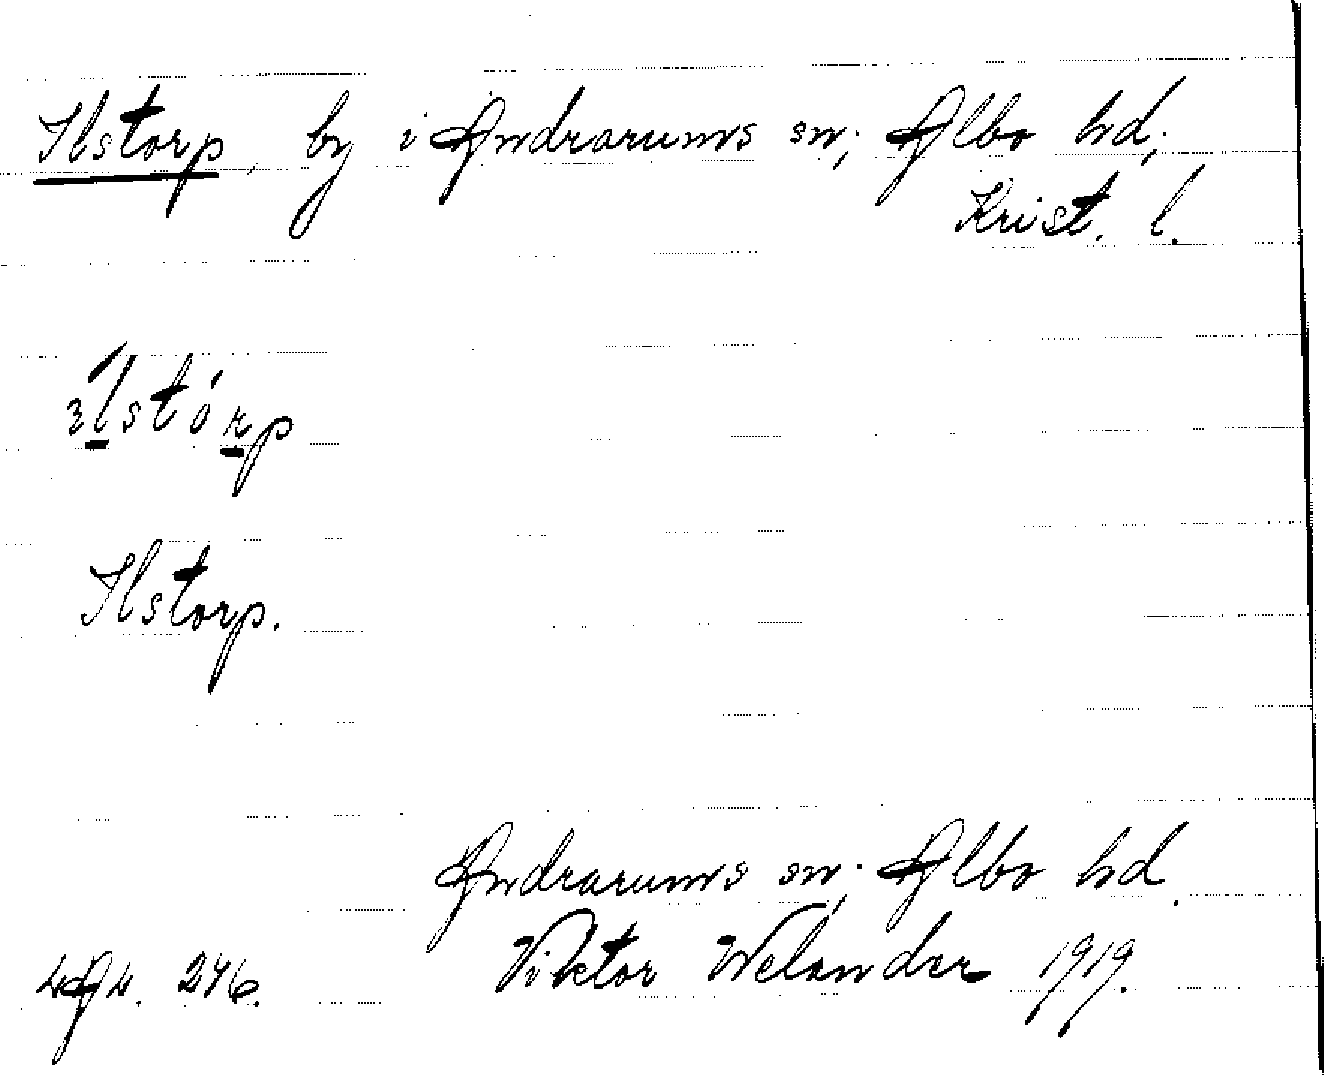 Ilstorp, by i Andrarums sn; Albo hd;
Krist. l.
Ilstorp.
Andrarums sn; Albo hd.
Viktor Welander 1919.
246.